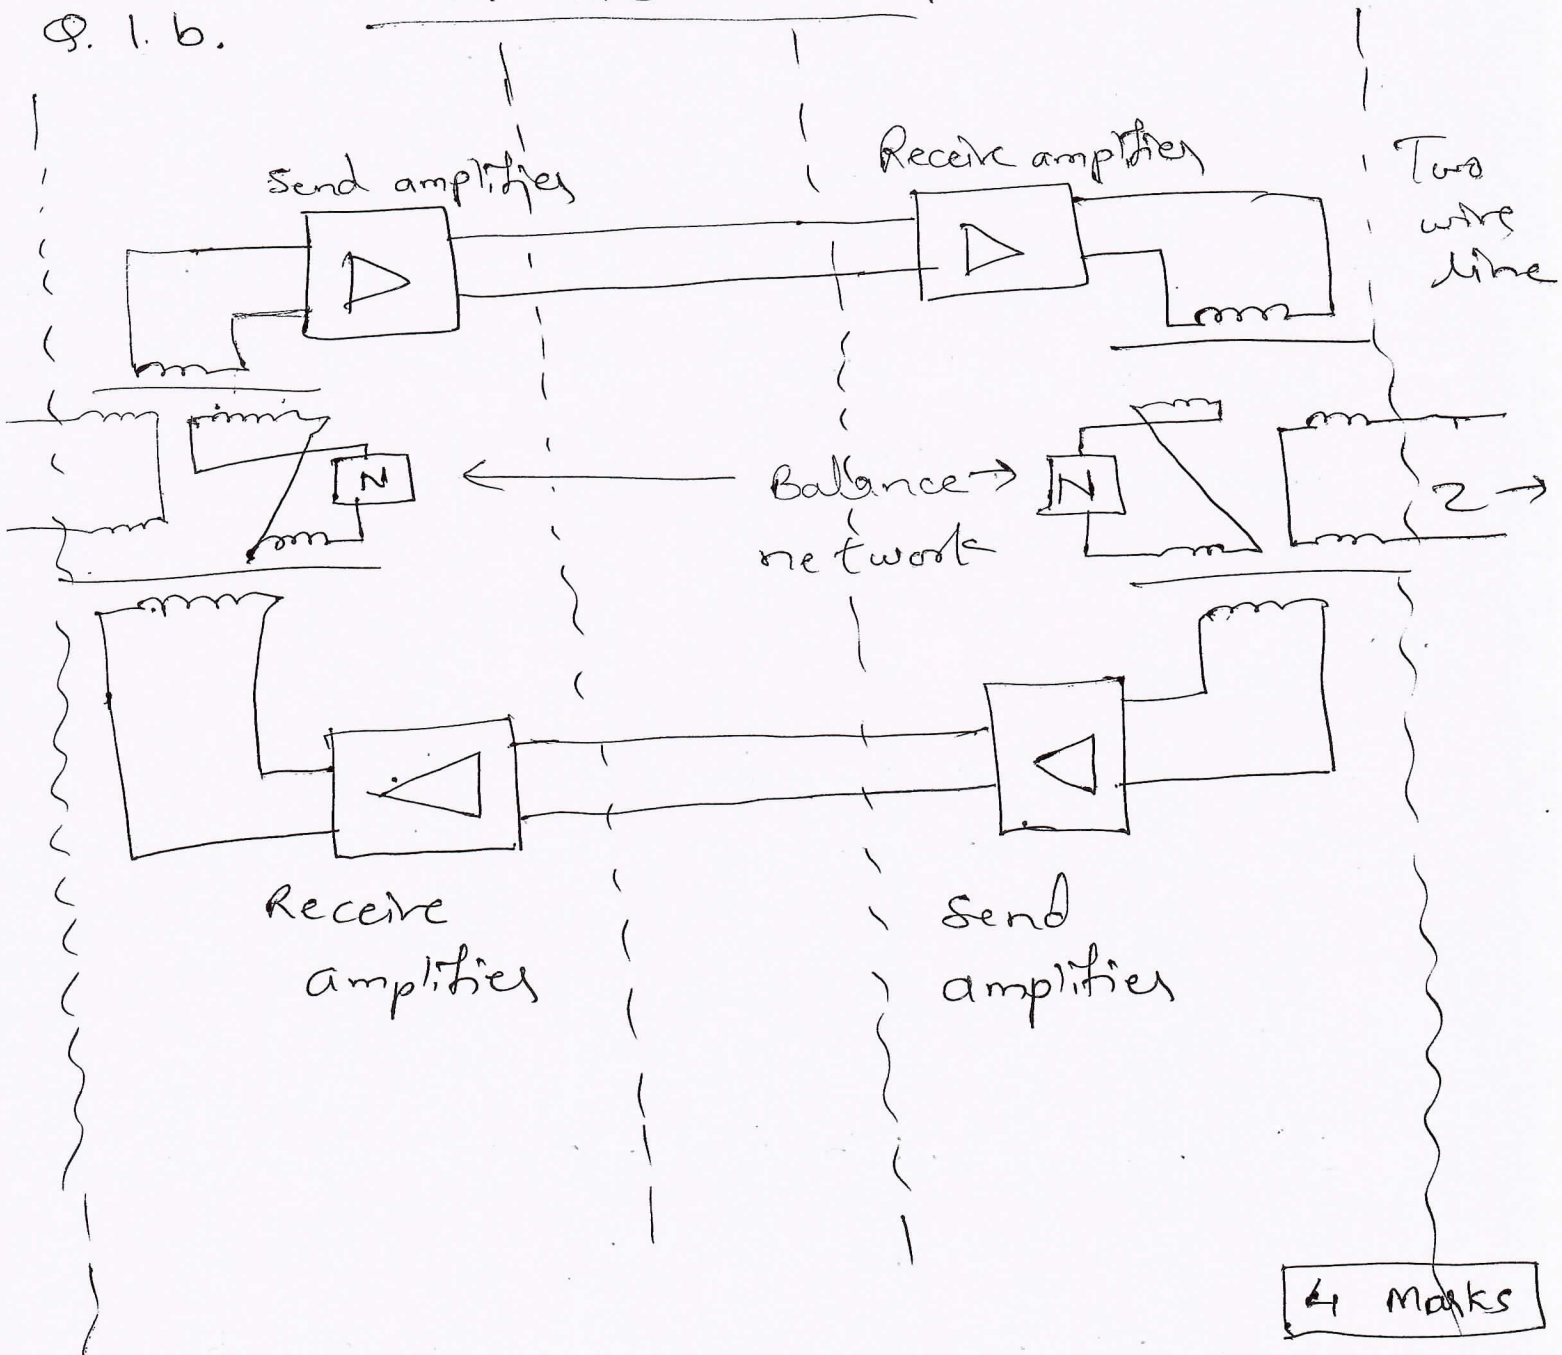 Q. 1. b.
Send amplifier
Receive amplifier
Two
wire
line
N
Balance
network
N
2
Receive
amplifier
Send
amplifier
4 Marks